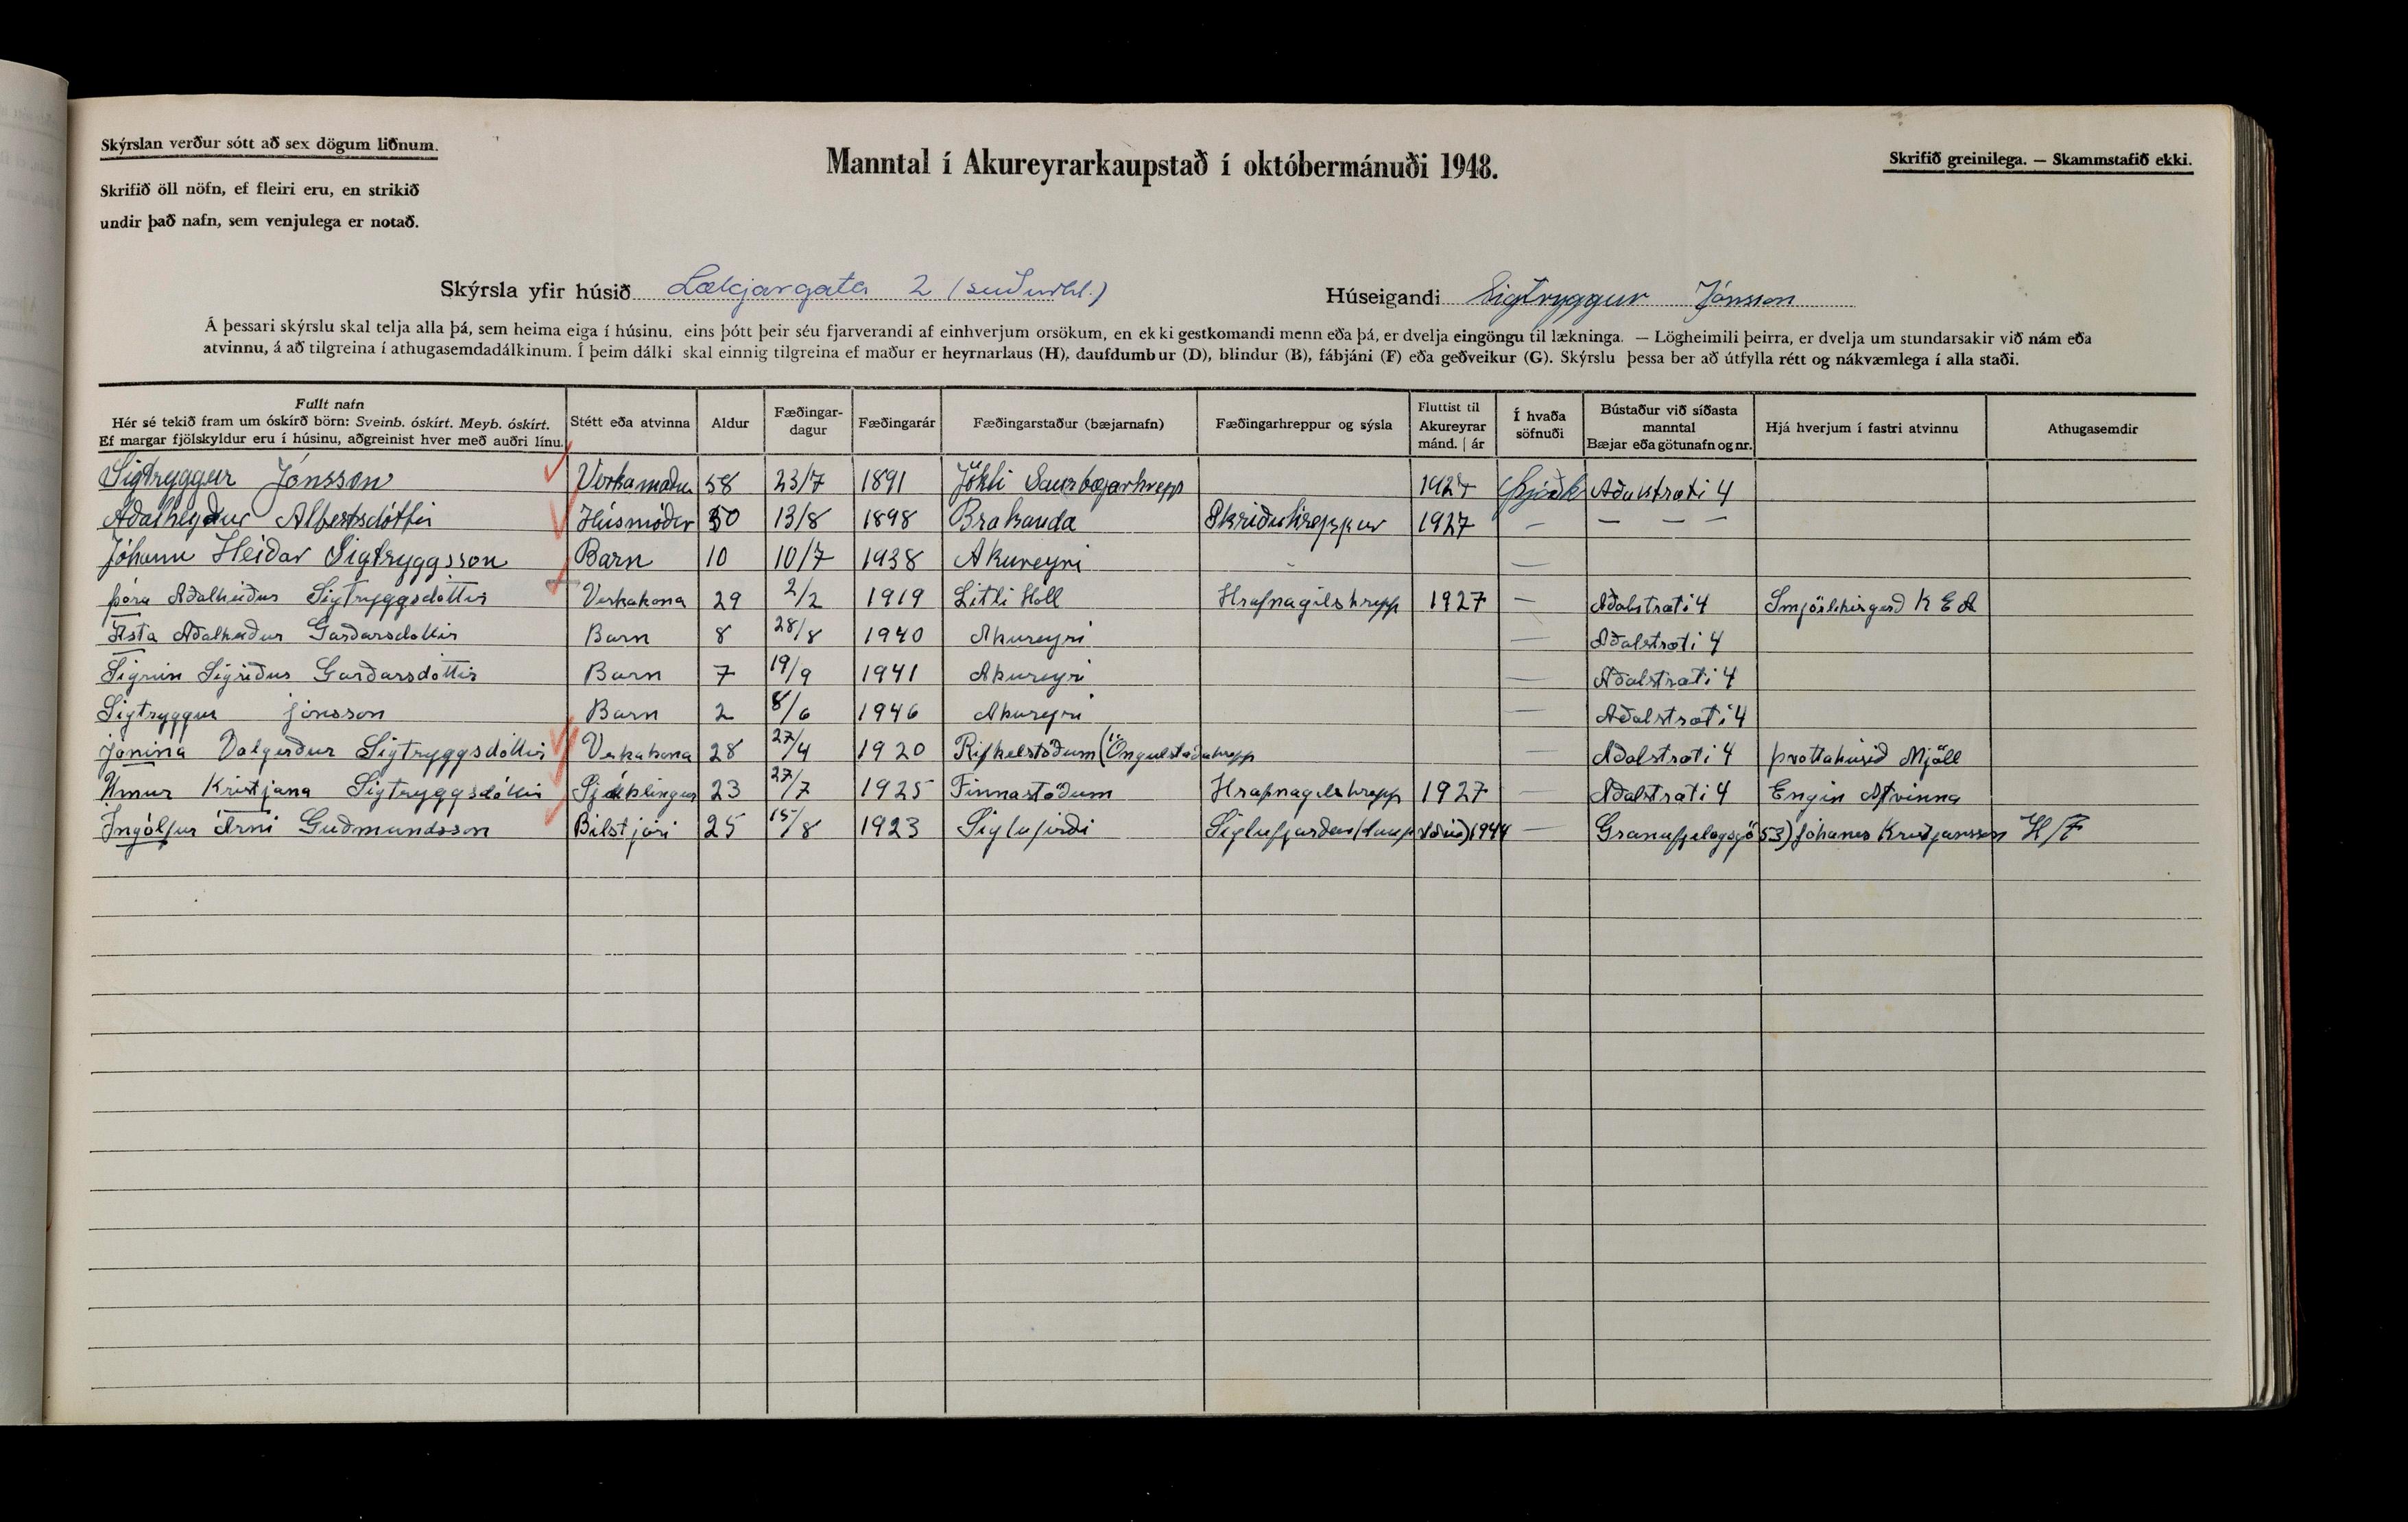 Skýrslan verður sótt að sex dögum liðnum.
Skrifið öll nöfn, ef fleiri eru, en strikið
undir það nafn, sem venjulega er notað.
Manntal í Akureyrarkaupstað í októbermánuði 1948.
Skrifið greinilega. — Skammstafið ekki.
Skýrsla yfir húsið Lækjargata 2 (suðurhl.) Húseigandi Sigtryggur Jónsson
Á þessari skýrslu skal telja alla þá, sem heima eiga í húsinu, eins þótt þeir séu fjarverandi af einhverjum orsökum, en ekki gestkomandi menn eða þá, er dvelja eingöngu til lækninga. — Lögheimili þeirra, er dvelja um stundarsakir við nám eða
atvinnu, á að tilgreina í athugasemdadálkinum. Í þeim dálki skal einnig tilgreina ef maður er heyrnarlaus (H), daufdumbur (D), blindur (B), fábjáni (F) eða geðveikur (G). Skýrslu þessa ber að útfylla rétt og nákvæmlega í alla staði.
Fullt nafn
Hér sé tekið fram um óskírð börn: Sveinb. óskírt. Meyb. óskírt.
Ef margar fjölskyldur eru í húsinu, aðgreinist hver með auðri línu.
Stétt eða atvinna
Aldur
Fæðingar-
dagur
Fæðingarár
Fæðingarstaður (bæjarnafn)
Fæðingarhreppur og sýsla
Fluttist til
Akureyrar
mánd. | ár
Í hvaða
söfnuði
Bústaður við síðasta
manntal
Bæjar eða götunafn og nr.
Hjá hverjum í fastri atvinnu
Athugasemdir
Sigtryggur Jónsson Verkamaður 58 23/7 1891 Jökli Saurbæjarhrepp 1927 Þjóðk Aðalstræti 4
Aðalheiður Albertsdóttir Húsmóðir 50 13/8 1898 Brakanda Skriðuhreppur 1927 — — — —
Jóhann Heiðar Sigtryggsson Barn 10 10/7 1938 Akureyri —
Þóra Aðalheiður Sigtryggsdóttir Verkakona 29 2/2 1919 Litli Hóll Hrafnagilshrepp 1927 — Aðalstræti 4 Smjörlíkisgerð K E A
Ásta Aðalheiður Garðarsdóttir Barn 8 28/8 1940 Akureyri — Aðalstræti 4
Sigrún Sigríður Garðarsdóttir Barn 7 19/9 1941 Akureyri — Aðalstræti 4
Sigtryggur Jónsson Barn 2 8/6 1946 Akureyri — Aðalstræti 4
Jónína Valgerður Sigtryggsdóttir Verkakona 28 27/4 1920 Rifkelstöðum (Öngulstaðahrepp — Aðalstræti 4 Þvottahúsið Mjöll
Unnur Kristjana Sigtryggsdóttir Sjúklingur 23 27/7 1925 Finnastöðum Hrafnagilshrepp 1927 — Aðalstræti 4 Engin Atvinna
Ingólfur Árni Guðmundsson Bílstjóri 25 15/8 1923 Siglufirði 1944 — 53) Jóhanes Kristjansson H/F